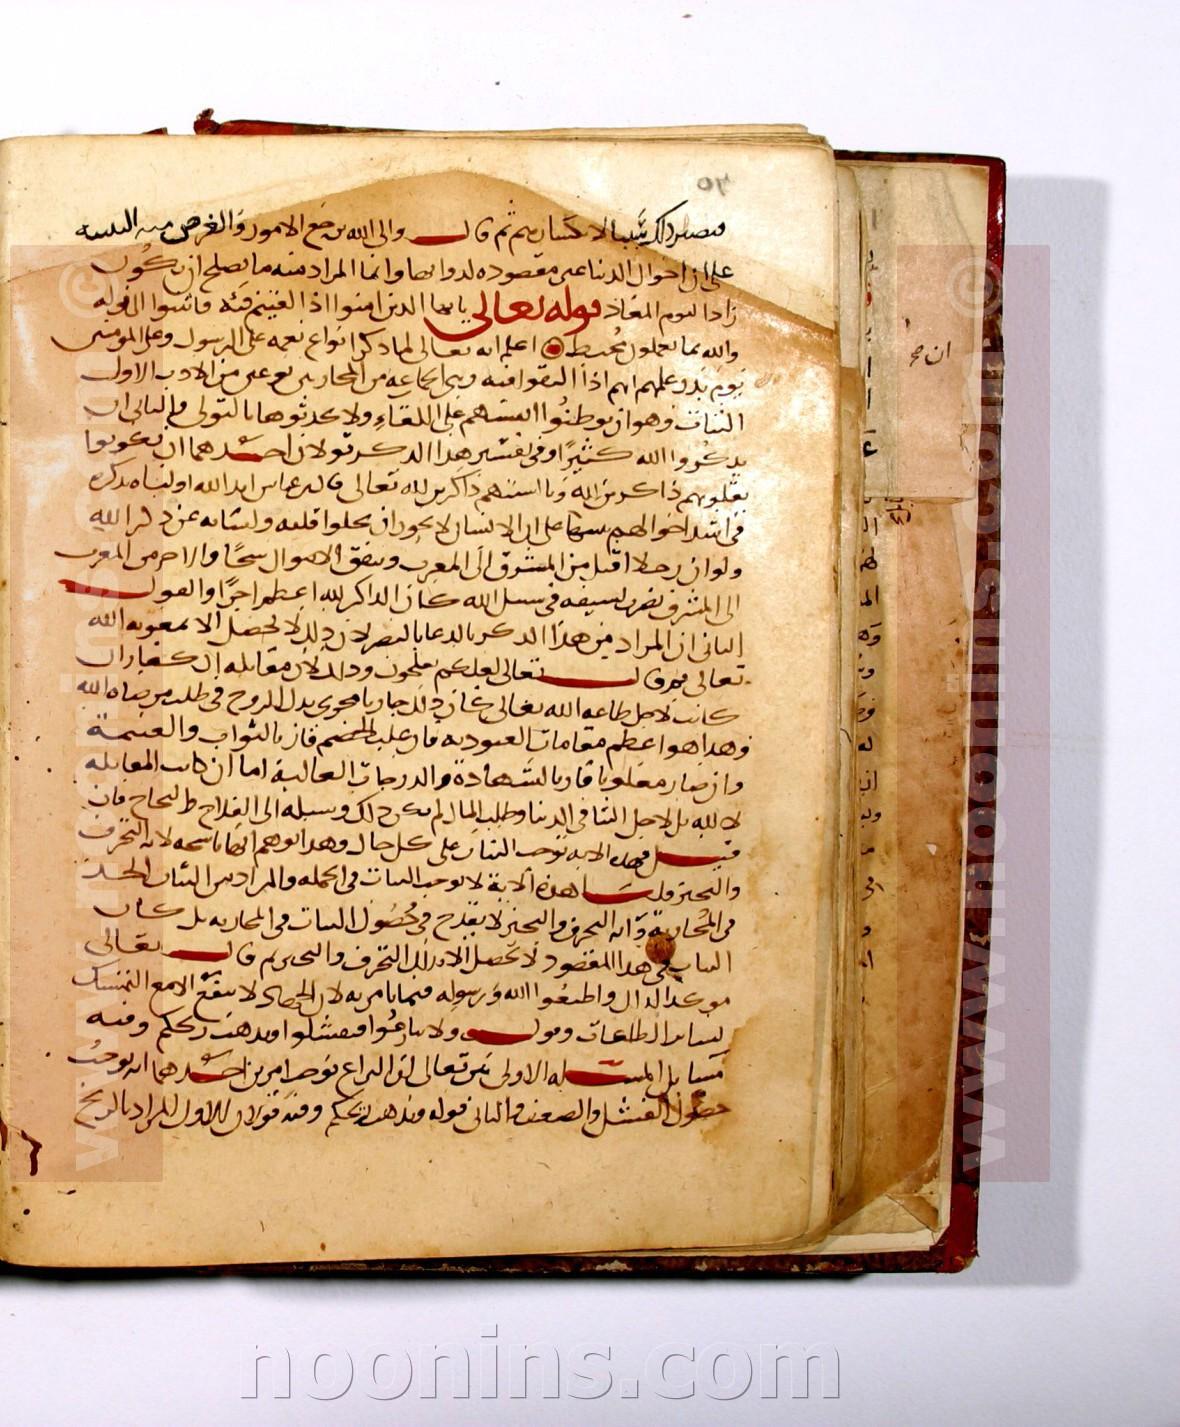 ٥٦
فيصير ذلك سببا لانكسارهم ثم قال والى الله ترجع الامور والغرض منه التنبيه
على ان احوال الدنيا غير مقصودة لذواتها وانما المراد منه ما يصلح ان يكون
زادا ليوم المعاد قوله تعالى يا ايها الذين امنوا اذا لقيتم فئة فاثبتوا الى قوله
والله بما يعملون محيط اعلم انه تعالى لما ذكر انواع نعمه على الرسول وعلى المؤمنين
يوم بدر علمهم انهم اذا التقوا فئة وهي الجماعة من المحاربين نوعين من الادب الاول
الثبات وهو ان يوطنوا انفسهم على اللقاء ولا يحدثوها بالتولي والثاني ان
يذكروا الله كثيرا وفي تفسير هذا الذكر قولان احدهما ان يكونوا
بقلوبهم ذاكرين الله وبالسنتهم ذاكرين لله تعالى قال ابن عباس امر الله اولياه بذكره
في اشد احوالهم تنبيها على ان الانسان لا يجوز ان يخلوا قلبه ولسانه عن ذكر الله
ولو ان رجلا اقبل من المشرق الى المغرب وينفق الاموال سخا والاخر من المغرب
الى المشرق يضرب بسيفه في سبيل الله كان الذاكر لله اعظم اجرا والقول
الثاني ان المراد من هذا الذكر الدعا بالنصر لان ذلك لا يحصل الا بمعونة الله
تعالى ثم قال تعالى لعلكم تفلحون وذلك لان مقابلة الكفار ان
كانت لاجل طاعة الله تعالى كان ذلك جاريا مجرى بذل الروح في طلب مرضاه الله
وهذا هو اعظم مقامات العبودية فان غلب الخصم فاز بالثواب والغنيمة
وان صار مغلوبا فاز بالشهادة والدرجات العالية اما ان كانت المقابلة
لا لله بل لاجل الثنا في الدنيا وطلب المال لم يكن ذلك وسيلة الى الفلاح والنجاح فان
قيل فهذه الاية توجب الثبات على كل حال وهذا يوهم انها ناسخة لاية التحرف
والتحيز قلنا هذه الاية لا توجب الثبات في الجملة والمراد من الثبات الجد
في المحاربة وانه التحرف والتحيز لا يقدح في حصول الثبات في المحاربة بل كان
الثبات في هذا المقصود لا يحصل الا بذلك التحرف والتحيز ثم قال تعالى
موكدا لذلك واطيعوا الله ورسوله فيما يامر به لان الجهاد لا ينفع الا مع التمسك
بسائر الطاعات وقوله ولا تنازعوا فتفشلوا وتذهب ريحكم وفيه
مسائل المسئلة الاولى بين تعالى ان النزاع يوجب امرين احدهما انه يوجب
حصول الفشل والضعف والثاني قوله وتذهب ريحكم وفيه قولان الاول المراد بالريح
ان صح
noonins.com
www.noonins.com ©
www.noonins.com ©